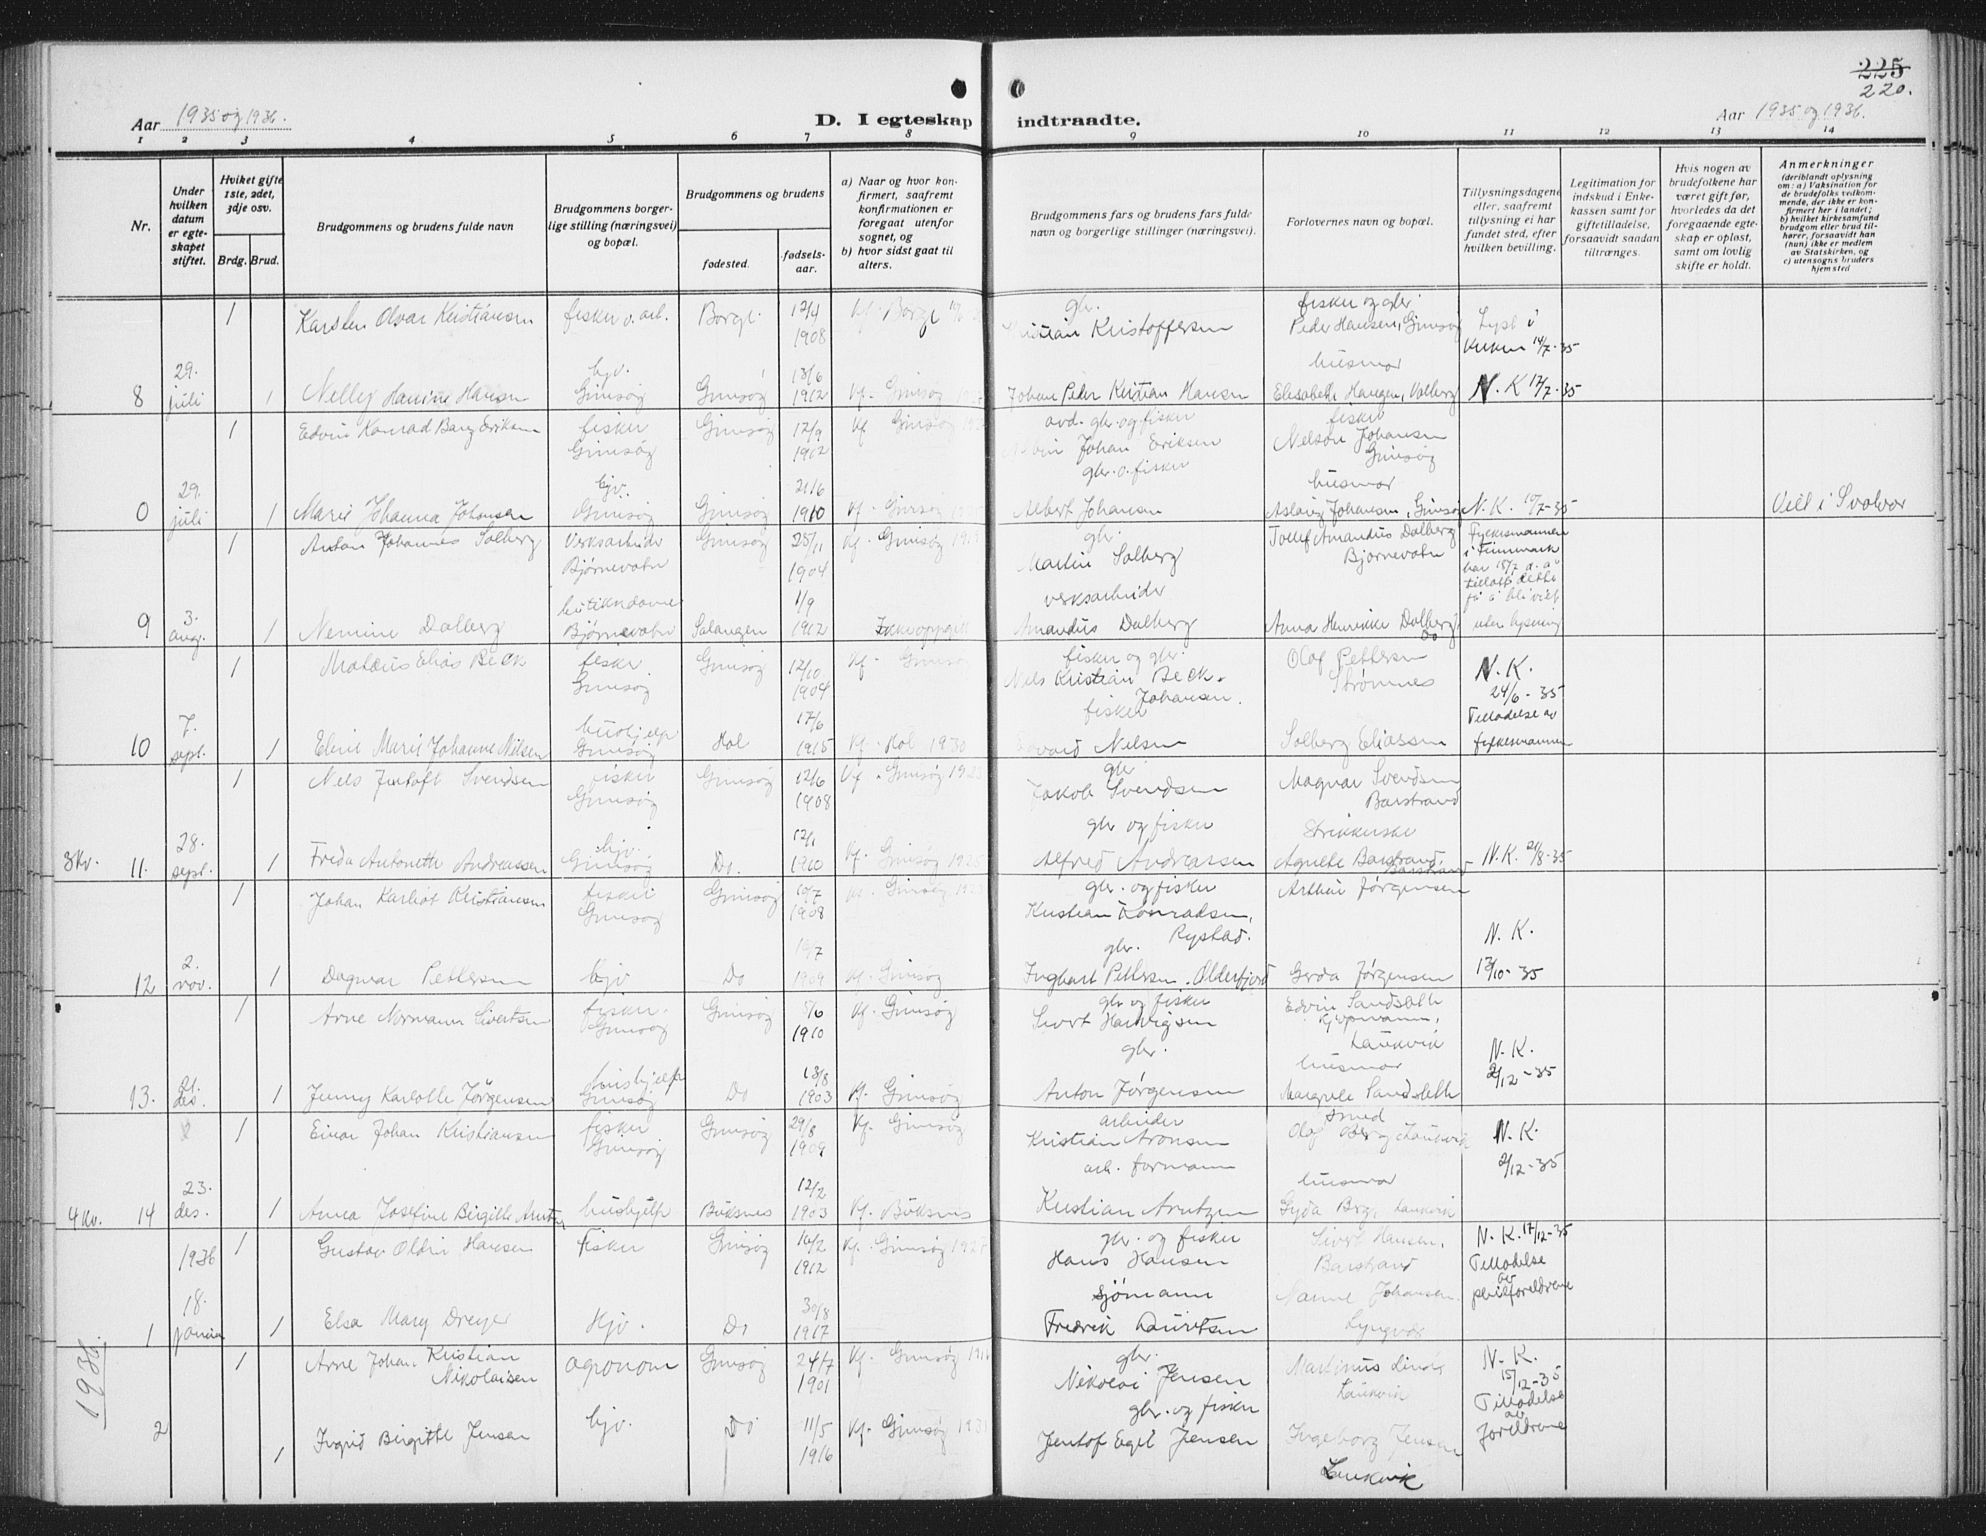 225
220.
Aar 1935 og 1936.
D. I egteskap indtraadte.
Aar 1935 og 1936.
1 2 3 4 5 6 7 8 9 10 11 12 13 14
Nr.
Under hvilken datum er egteskapet stiftet.
Hviket gifte 1ste, 2det, 3dje osv.
Brdg. Brud.
Brudgommens og brudens fulde navn
Brudgommens borgerlige stilling (næringsvei) og bopæl.
Brudgommens og brudens
fødested.
fødselsaar.
a) Naar og hvor konfirmert, saafremt konfirmationen er foregaat utenfor sognet, og
b) hvor sidst gaat til alters.
Brudgommens fars og brudens fars fulde navn og borgerlige stillinger (næringsvei).
Forlovernes navn og bopæl.
Tillysningsdagene eller, saafremt tillysning ei har fundet sted, efter hvilken bevilling.
Legitimation for indskud i Enkekassen samt for giftetilladelse, forsaavidt saadan tiltrænges.
Hvis nogen av brudefolkene har været gift før, hvorledes da det foregaaende egteskap er opløst, samt om lovlig skifte er holdt.
Anmerkninger
(deriblandt oplysning om: a) Vaksination for de brudefolks vedkommende, der ikke er konfirmert her i landet; b) hvilket kirkesamfund brudgom eller brud tilhører, forsaavidt han (hun) ikke er medlem av Statskirken, og c) utensogns bruders hjemsted
1 Karsten Olvar Kristiansen fisker o. arb. Borge 12/4 1908 Kf. Borge gbr. Kristian Kristoffersen fisker og gbr. Peder Hansen, Gimsøy Lyst i kirken 14/7-35
8 29. juli 1 Nelly Hanine Hansen hjv. Gimsøy Gimsøy 13/6 1912 Kf. Gimsøy Johan Peder Kristian Hansen husmor Elisabeth Hansen, Valberg N.K 17/7-35
1 Edvin Konrad Berg Eriksen fisker Gimsøy Gimsøy 12/9 1902 Kf Gimsøy avd. gbr. og fisker Johan Eriksen fisker Nelson Johansen Gimsøy
0 29. juli 1 Marie Johanna Johansen hjv. Gimsøy Gimsøy 21/6 1910 Kf. Gimsøy gbr. o. fisker Albert Johansen husmor Aslaug Johansen, Gimsøy N.K. 10/7-35 Viet i Svolvær
1 Anton Johannes Solberg Verksarbeider Bjørnevatn Gimsøy 25/11 1904 Kf. Gimsøy gbr. Martin Solberg Tollef Amandus Dalberg Bjørnevatn Fylkesmannen i Finnmark har 15/7 d. å. tillatt dette få å bli viet uten lysning
9 3. aug. 1 Nemine Dalberg butikkdame Bjørnevatn Salangen 1/9 1912 Ikke oppgitt verksarbeider Amandus Dalberg Anna Henrikke Dalberg Do
1 Matæus Elias Beck fisker Gimsøy Gimsøy 12/10 1904 Kf. Gimsøy fisker og gbr. Nels Kristian Beck Johansen. Olaf Pettersen Strømnes N.K. 24/6-35
10 7. sept. 1 Eline Marie Johanne Nilsen hushjelp Gimsøy Hol 17/6 1915 Kf. Hol 1930 fisker Edvard Nilsen Solberg Eliassen Tilladelse av fylkesmannen
1 Nels Jentoft Svendsen fisker Gimsøy Gimsøy 12/6 1908 Kf. Gimsøy 1923 gbr. Jakob Svendsen Magnar Svendsen Barstrand
3 Kv. 11. 28. sept. 1 Freda Antonette Andreassen hjv. Gimsøy Do. 12/1 1910 Kf. Gimsøy 1925 gbr og fisker Alfred Andreassen strikkerske Agnete Barstrand, Barstrand N.K. 21/8-35
1 Johan Karlot Kristiansen fisker Gimsøy Gimsøy 10/7 1908 Kf. Gimsøy gbr. og fisker Kristian Konradsen, Rystad. Arthur Jørgensen
12 2. nov. 1 Dagmar Pettersen hjv Do 1909 Kf. Gimsøy gbr. Inghart Pettersen. Olderfjord Gerda Jørgensen N.K. 13/10-35
1 Arne Normann Sivertsen fisker. Gimsøy Gimsøy 5/6 1910 Kf. Gimsøy gbr og fisker Sivert Hartvigsen Edvin Sandsleth kjøpmann, Laukvik
13. 21. des. 1 Jenny Karlotte Jørgensen hushjelp Gimsøy Do 18/8 1903 Kf. Gimsøy gbr. Anton Jørgensen husmor Margrete Sandsleth N.K. 2/12-35
1 Einar Johan Kristiansen fisker Gimsøy Gimsøy 29/8 1909 Kf. Gimsøy arbeider Kristian Aronsen smed Olaf Berg, Laukvik N.K. 2/12-35
4 Kv. 14 23. des. 1 Anna Josefine Birgitte Arntzen hushjelp Buksnes 12/2 1903 Kf. Buksnes arb. formann Kristian Arntzen husmor Gyda Berg, Laukvik
1936 1 Gustav Oldin Hansen Fisker Gimsøy 16/2 1912 Kf. Gimsøy 1927 gbr. og fisker Hans Hansen Sivert Hansen, Barstrand N.K. 17/12-35
1 18. januar 1 Elsa Mary Dreyer Hjv. Do 30/8 1917 sjømann Fredrik Lauritsen Nanne Johansen. Lyngvær Tilladelse av pleieforeldrene
1936.
1 Arne Johan Kristian Nikolaisen agronom Gimsøy 24/7 1901 Kf. Gimsøy 1916 gbr. Nikolai Jensen Martinus Lind Laukvik N.K. 15/12-35
2 1 Ingrid Birgitte Jensen hjv. Do 11/5 1916 Kf. Gimsøy 1931 gbr. og fisker Jentof Egil Jensen Ingeborg Jensen Laukvik Tilladelse av foreldrene